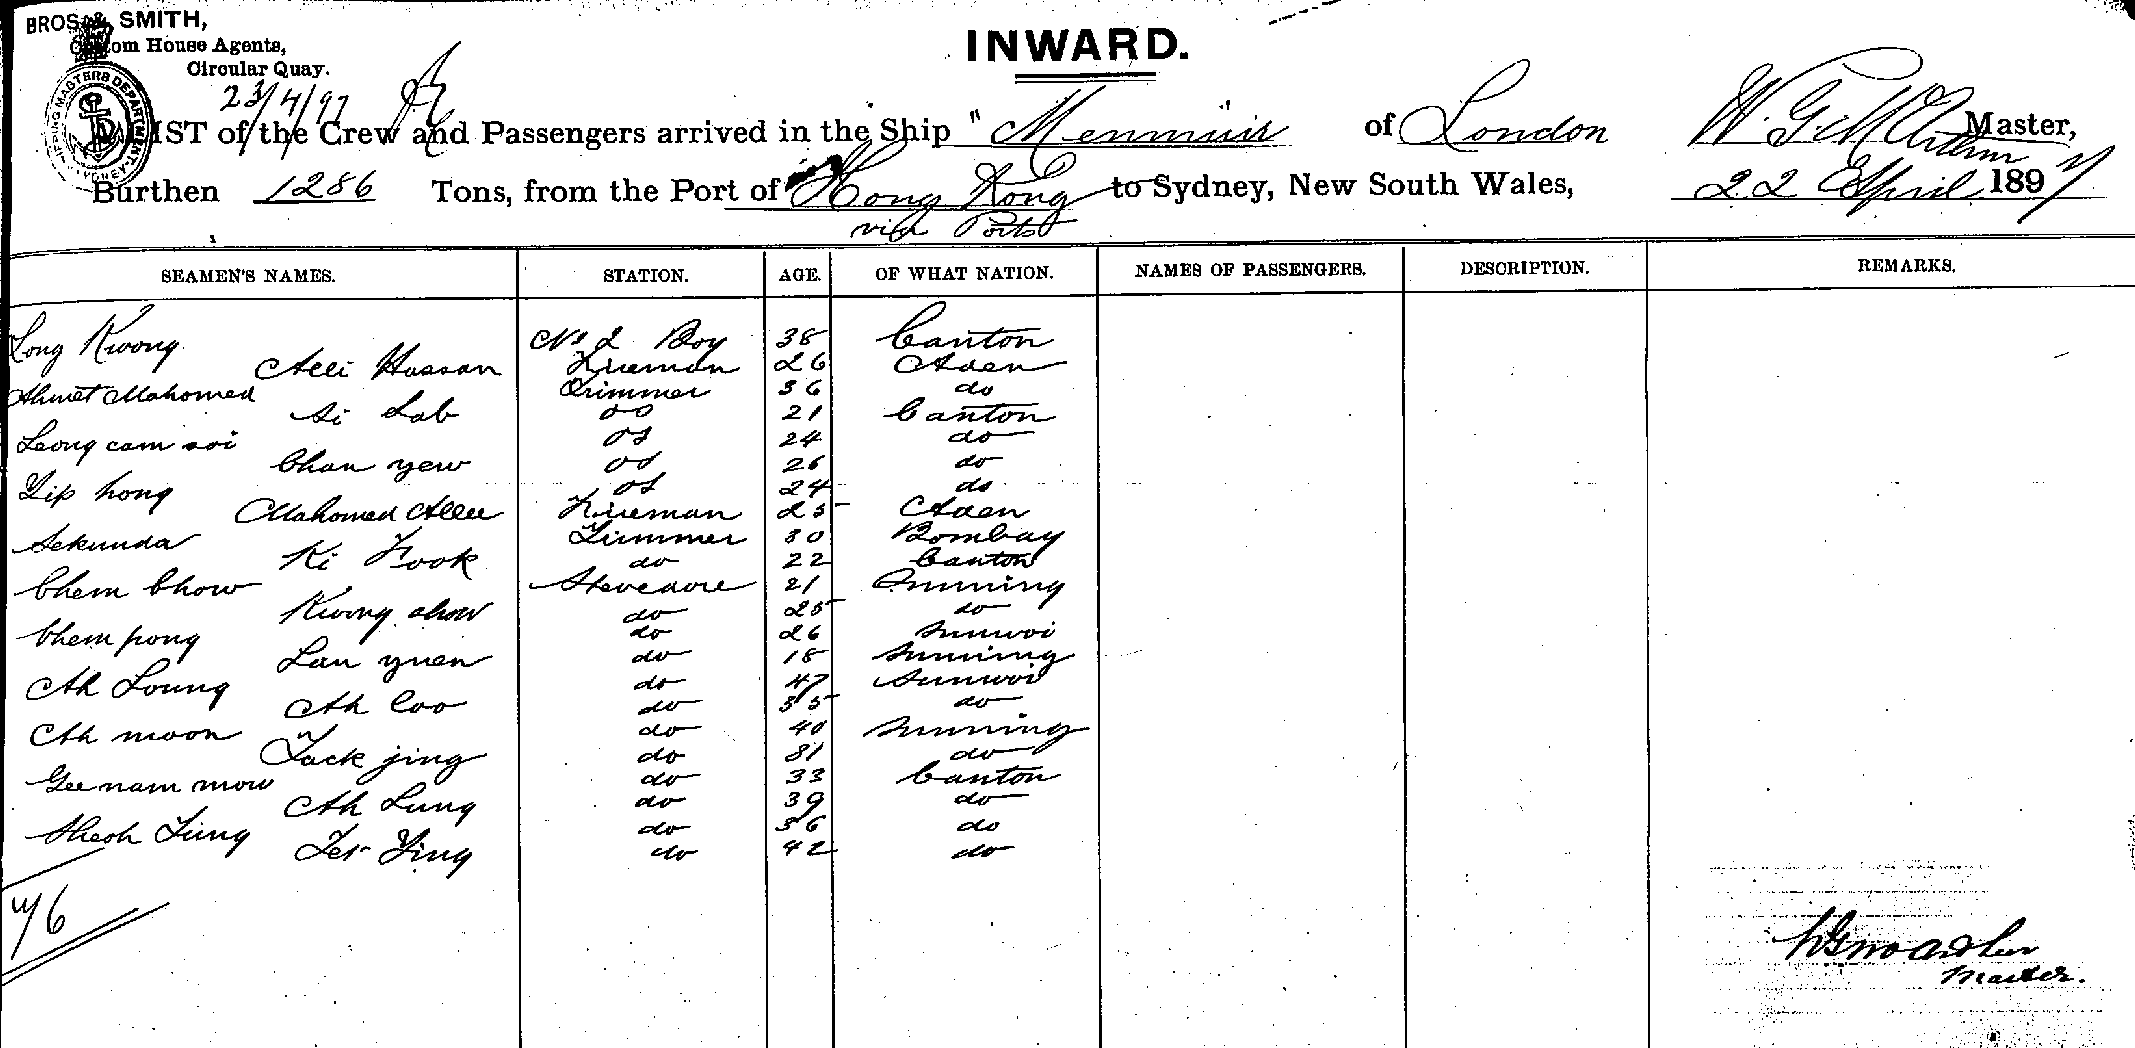 BROS & SMITH,
Custom House Agents,
Circular Quay.
INWARD.
23/4/97
LIST of the Crew and Passengers arrived in the Ship "Menmuir" of London W. G. McArthur Master,
Burthen 1286 Tons, from the Port of Hong Kong to Sydney, New South Wales, 22 April 1897
via Ports
SEAMEN'S NAMES. STATION. AGE. OF WHAT NATION. NAMES OF PASSENGERS. DESCRIPTION. REMARKS.
Long Kwong No 2 Boy 38 Canton
Alli Hassan Fireman 26 Aden
Ahmet Mahomed Trimmer 36 do
Ai Lab do 21 Canton
Leong cam soi do 24 do
Chan yew do 26 do
Yip hong do 24 do
Mahomed Allee Fireman 25 Aden
Sekunda Trimmer 30 Bombay
Ki Fook do 22 Canton
Chem Chow Stevedore 21 Sunning
Kwong chow do 25 do
Chem pong do 26 Sunwoi
Lau yuen do 18 Sunning
Ah Loung do 47 Sunwoi
Ah Coo do 35 do
Ah moon do 40 Sunning
Tack jing do 31 do
Gee nam mow do 33 Canton
Ah Lung do 39 do
Sheoh Tung do 36 do
Ying do 42 do
W G McArthur
Master.